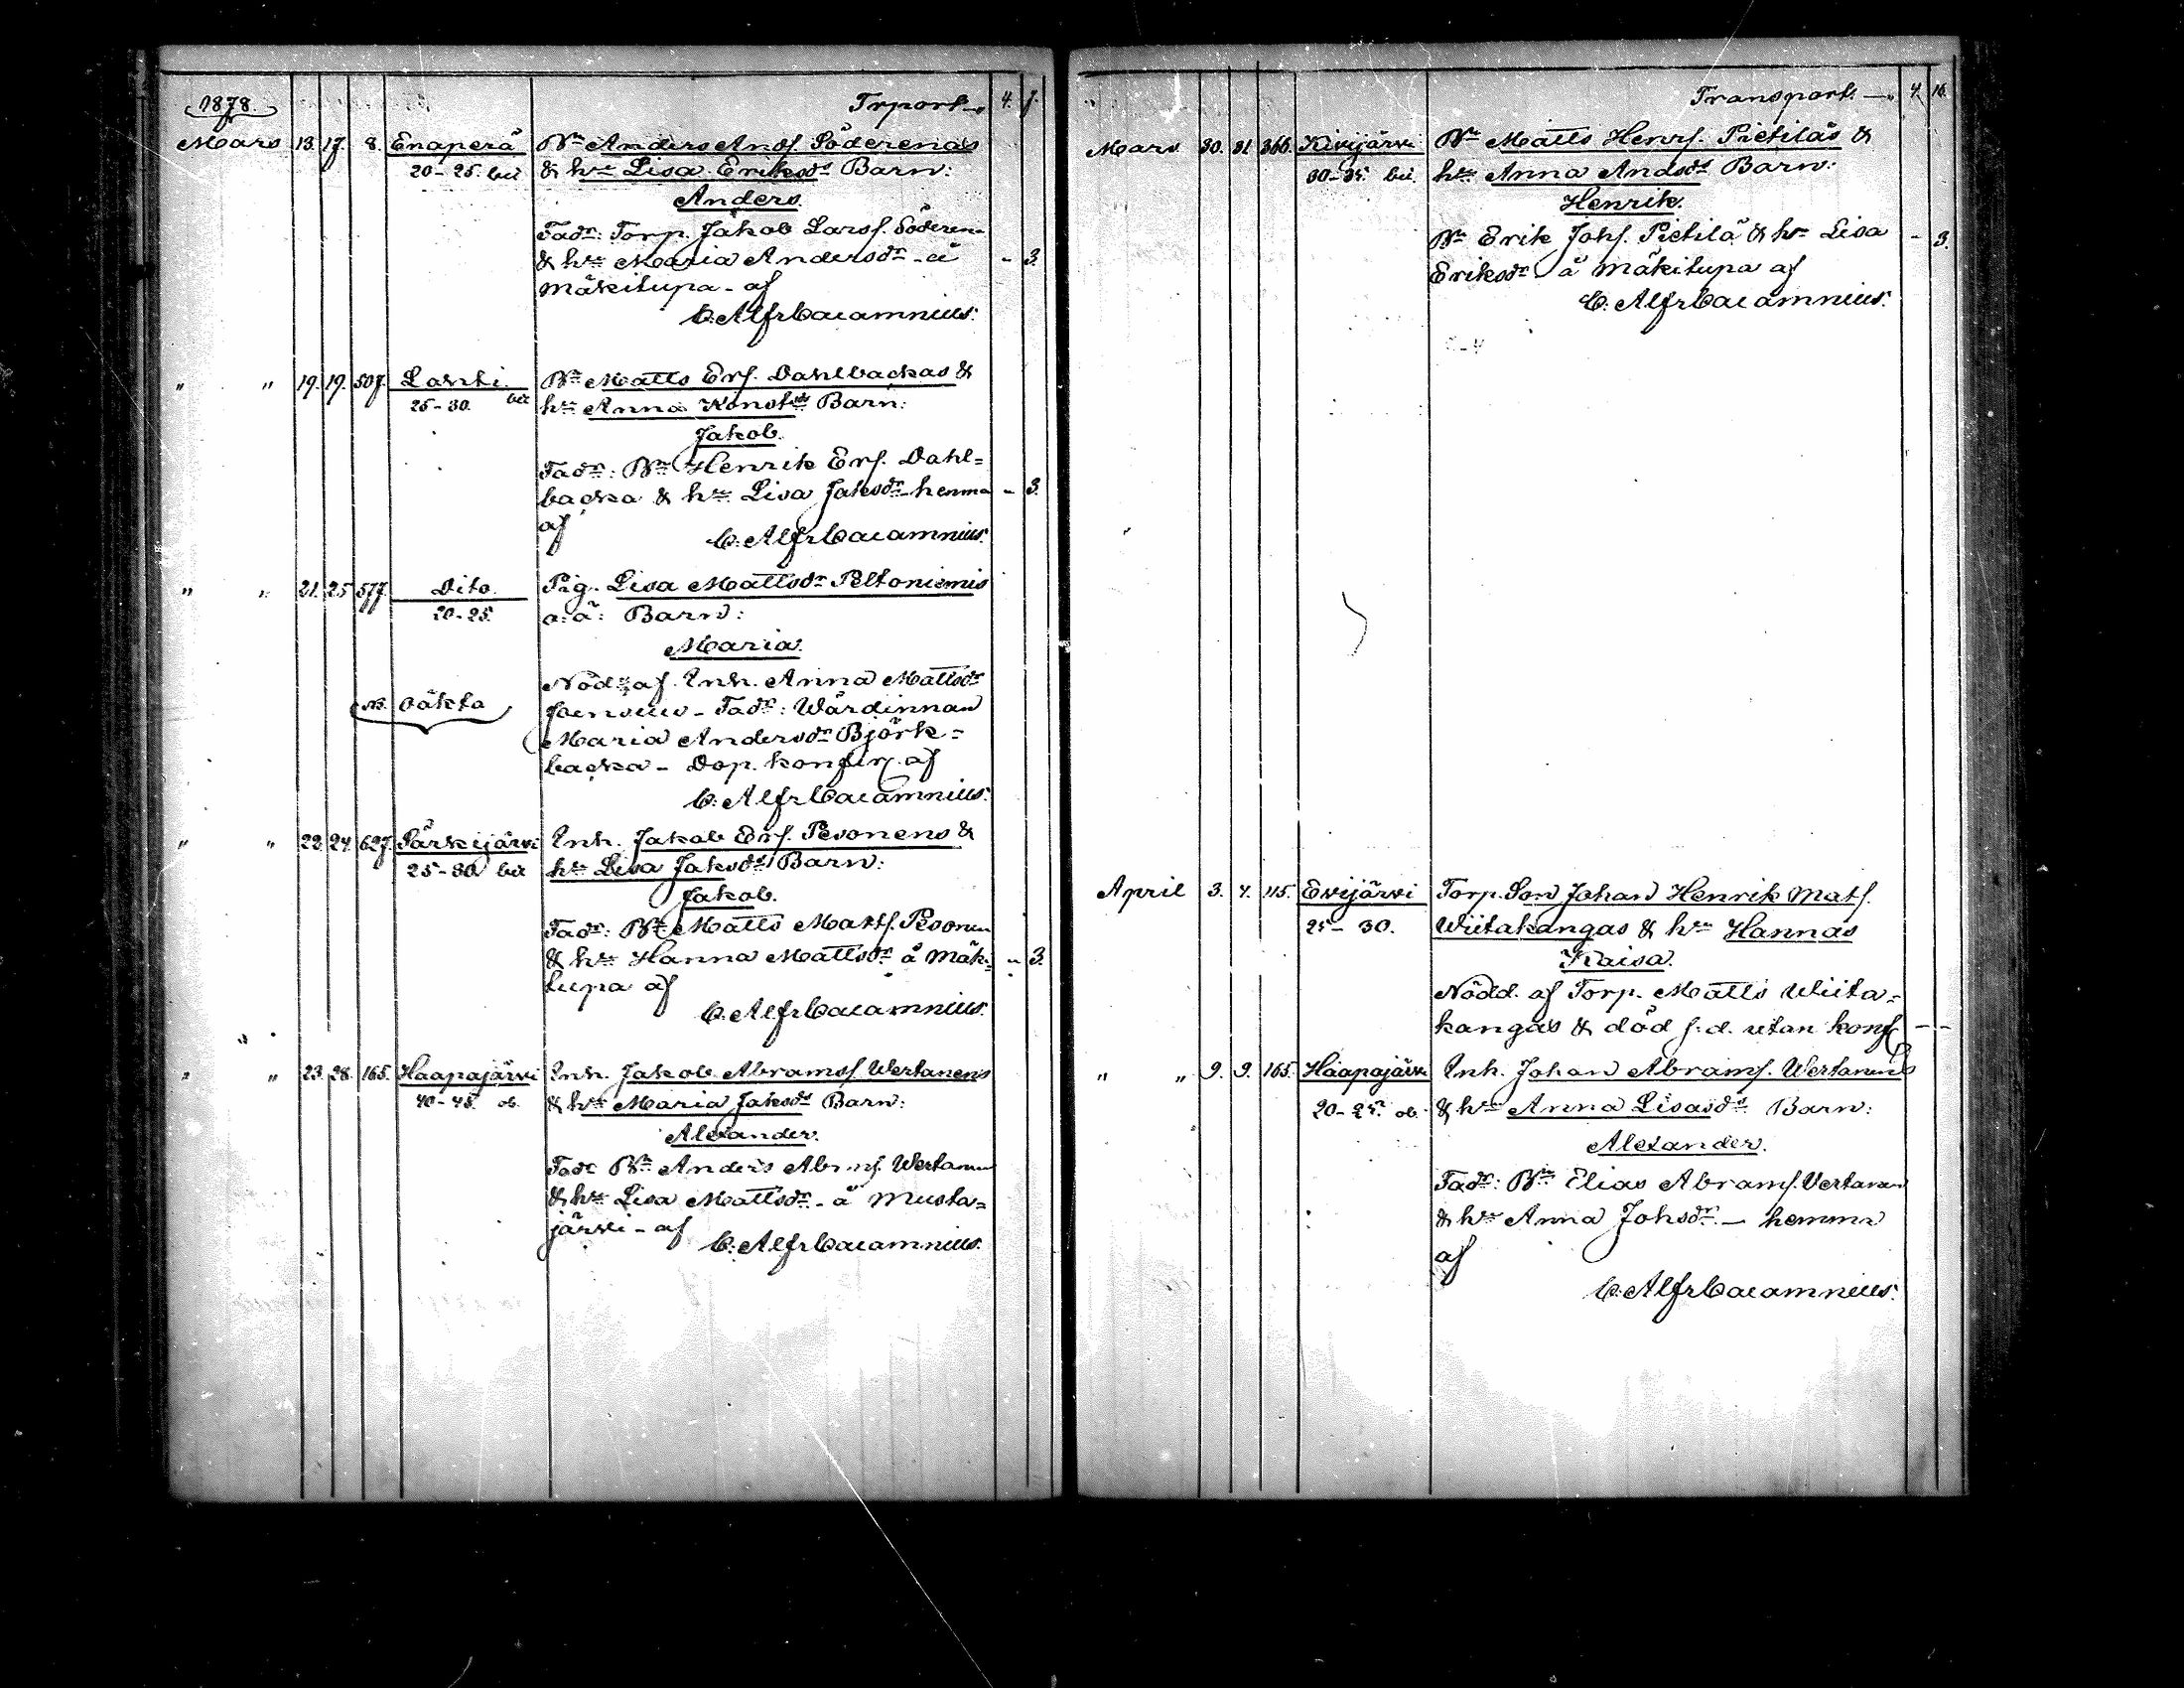 1878. Trport — 4. 7.
Mars 13. 17. 8. Enaperä Bn Anders Ands. Söderenäs
20-25. bu & hu Lisa Eriksdrs Barn:
Anders.
Fadr: Torp. Jakob Larss. Söderen-
& hu Maria Andersdr - å - 3.
mäkitupa - af
C. Alfr Cajamnius.
" " 19. 19. 507. Laszti. Bn Matts Ers. Dahlbackas &
25-30. bu hu Anna Konstsdr Barn:
Jakob.
Fadr: Bn Henrik Ers. Dahl=
backa & hu Lisa Jaksdr - hemma - 3.
af
C. Alfr Cajamnius.
" " 21. 25. 577. Dito. Pig. Lisa Mattsdr Peltoniemis
20-25. o: ä: Barn:
Maria.
Nöd. af Inh. Anna Mattsdr
NB. Oäkta Fadr: Wärdinnan
Maria Andersdr Björk=
backa - Dop. konfir. af
C. Alfr Cajamnius.
" " 22. 24. 627. Särkijärvi Inh. Jakob Ers. Pesonens &
25-30 bu hu Lisa Jaksdrs Barn:
Jakob.
Fadr: Bn Matts Matts. Pesonen
& hu Hanna Mattsdr å Mäk= - 3.
tupa af
C. Alfr Cajamnius.
" " 23. 28. 165. Haapajärvi Inh. Jakob Abrams. Wertanens
40-45. ob. & hu Maria Jaksdrs Barn:
Alexander.
Fadr Bn Anders Abrms. Wertanen
& hu Lisa Mattsdr - å Musta=
järvi - af
C. Alfr Cajamnius.
Transport. — 4. 16.
Mars 30. 31. 366. Kivijärvi Bn Matts Henrs. Pietiläs &
30-35. bu. hu Anna Andsdrs Barn:
Henrik.
Bn Erik Johs. Pietilä & hu Lisa - 3.
Eriksdr å mäkitupa af
C. Alfr Cajamnius.
April 3. 4. 115. Evijärvi Torp. Son Johan Henrik Mats.
25-30. Wiitakangas & hu Hannas
Kaisa.
Nödd. af Torp. Matts Wiita=
kangas & död s. d. utan konf. - -
" " 9. 9. 165. Haapajärvi Inh. Johan Abrams. Wertanens
20-25. ob. & hu Anna Lisasdrs Barn:
Alexander.
Fadr: Bn Elias Abrams. Vertanen
& hu Anna Johsdr - hemma
af
C. Alfr Cajamnius.